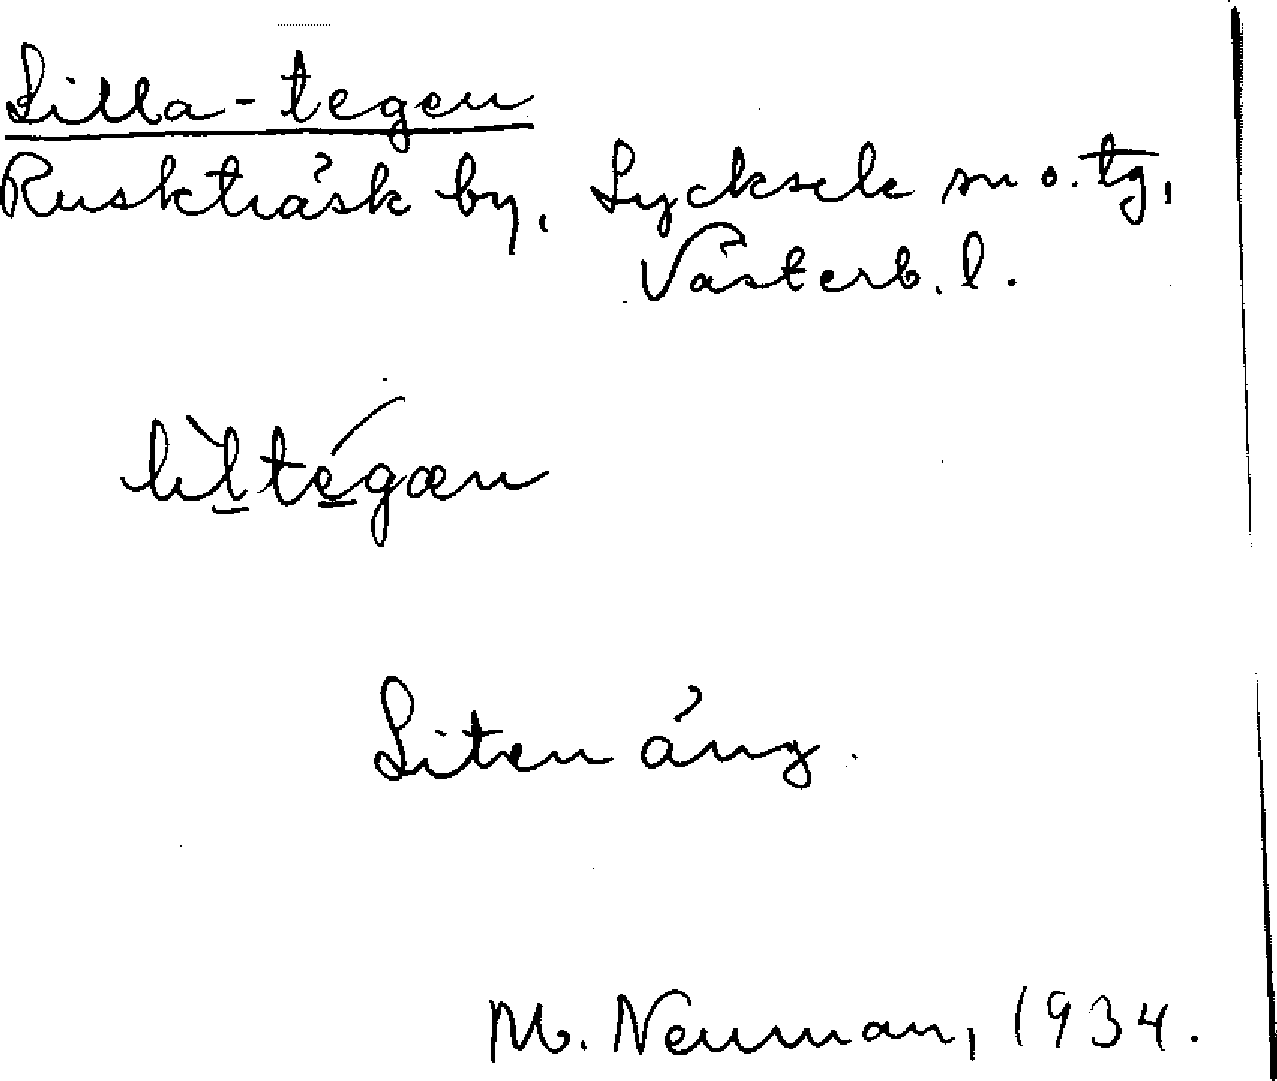 Lilla-tegen
Ruskträsk by, Lycksele sn o. tg,
Västerb. l.
lìl̲té̲gæn
Liten äng.
M. Neuman, 1934.